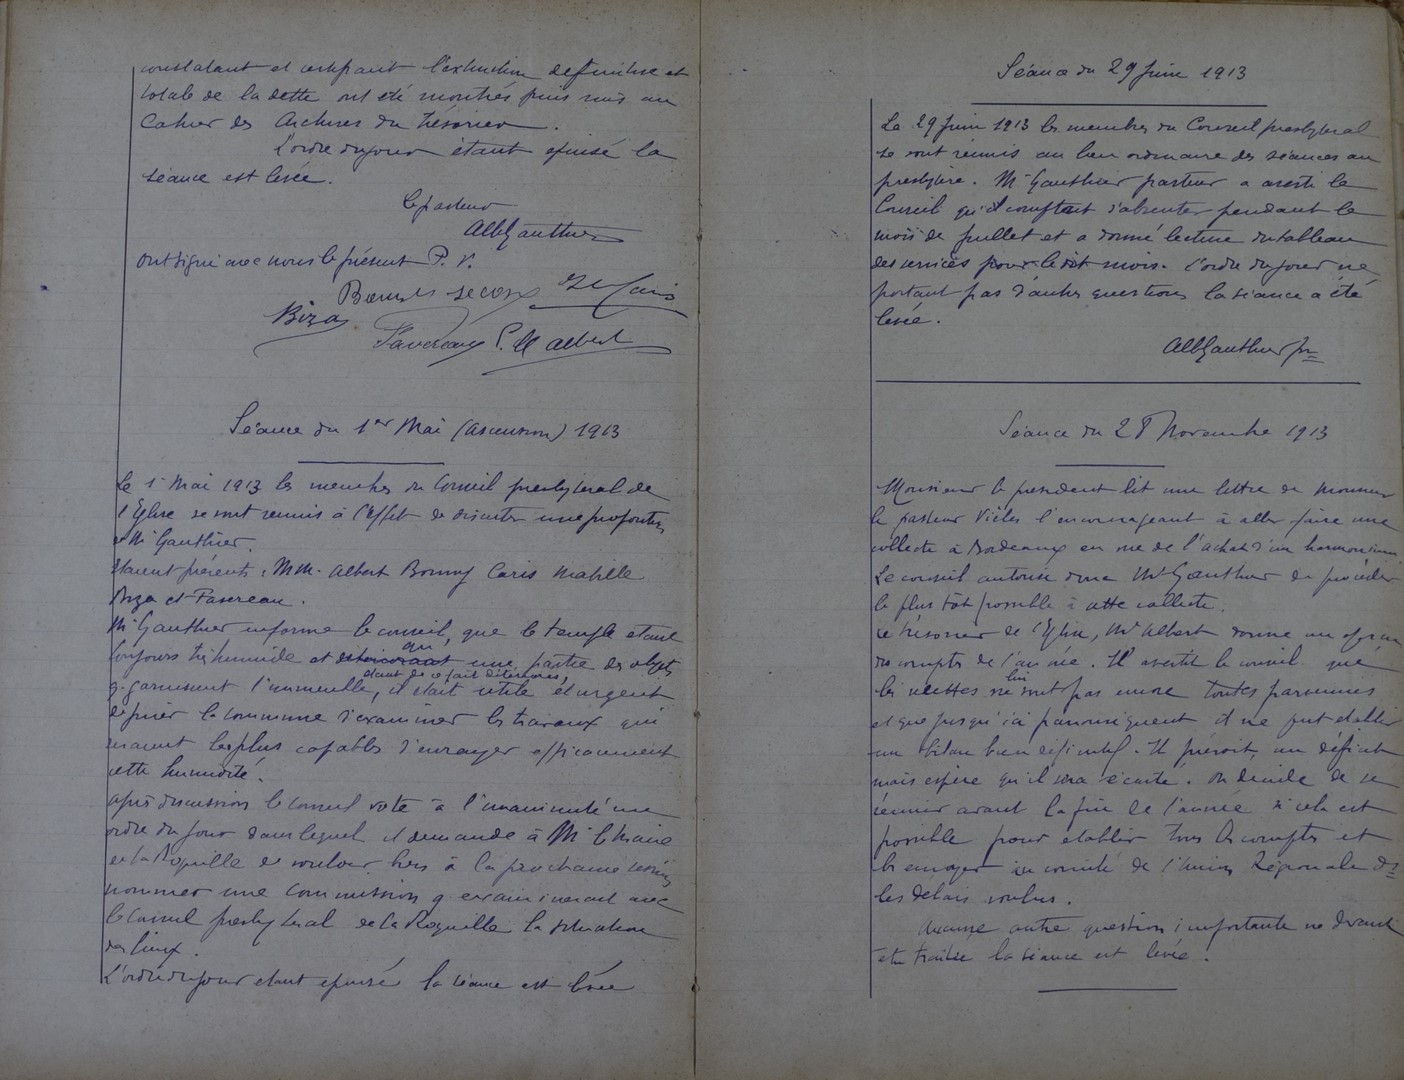 constatant et certifiant l'extinction definitive et
totale de la dette ont été montrés puis mis au
Cahier des Archives du trésorier.
L'ordre du jour étant épuisé la
séance est levée.
le pasteur
Alb Gauthier
ont signé avec nous le présent P. V.
Caris
Biza
Favereau P. Albert
Séance du 1er Mai (Ascension) 1913
Le 1 Mai 1913 les membres du Conseil presbyteral de
l'Eglise se sont reunis à l'effet de discuter une proposition
de Mr Gauthier.
étaient présents, MM. Albert Caris
Biza et Favereau.
Mr Gauthier informe le conseil, que le temple étant
toujours très humide et qu une partie des objets
q. garnissent l'immeuble, étant de ce fait détériorés, il était utile et urgent
de prier la commune d'examiner les travaux qui
seraient les plus capables d'enrayer efficacement
cette humidité.
après discussion le conseil vote à l'unanimité un
ordre du jour dans lequel il demande à Mr le Maire
de la Roquille de vouloir lors de la prochaine réunion
nommer une commission q examinerait avec
le Conseil presbyteral de la Roquille la situation
des lieux.
L'ordre du jour étant épuisé la séance est levée
Séance du 29 Juin 1913
Le 29 Juin 1913 les membres du Conseil presbyteral
se sont réunis au lieu ordinaire des séances au
presbytère. Mr Gauthier pasteur a averti le
Conseil qu'il comptait s'absenter pendant le
mois de juillet et a donné lecture du tableau
des services pour le dit mois. L'ordre du jour ne
portant pas d'autres questions la séance a été
levée.
Alb Gauthier pr
Séance du 28 Novembre 1913
Monsieur le president lit une lettre de Monsieur
le pasteur Vièles l'encourageant à aller faire une
collecte à Bordeaux en vue de l'achat d'un harmonium
Le conseil autorise donc Mr Gauthier de procéder
le plus tôt possible à cette collecte.
Le trésorier de l'Eglise, Mr Albert donne un aperçu
des comptes de l'année. Il avertit le conseil que
les recettes ne lui sont pas encore toutes parvenues
et que jusqu'ici par conséquent il ne put etablir
un bilan bien définitif. Il prévoit un déficit
mais espère qu'il sera écarté. On decide de se
réunir avant la fin de l'année si cela est
possible pour etablir tous les comptes et
les envoyer au comité de l'Union Régionale ds
les delais voulus.
Aucune autre question importante ne devant
etre traitée la séance est levée.